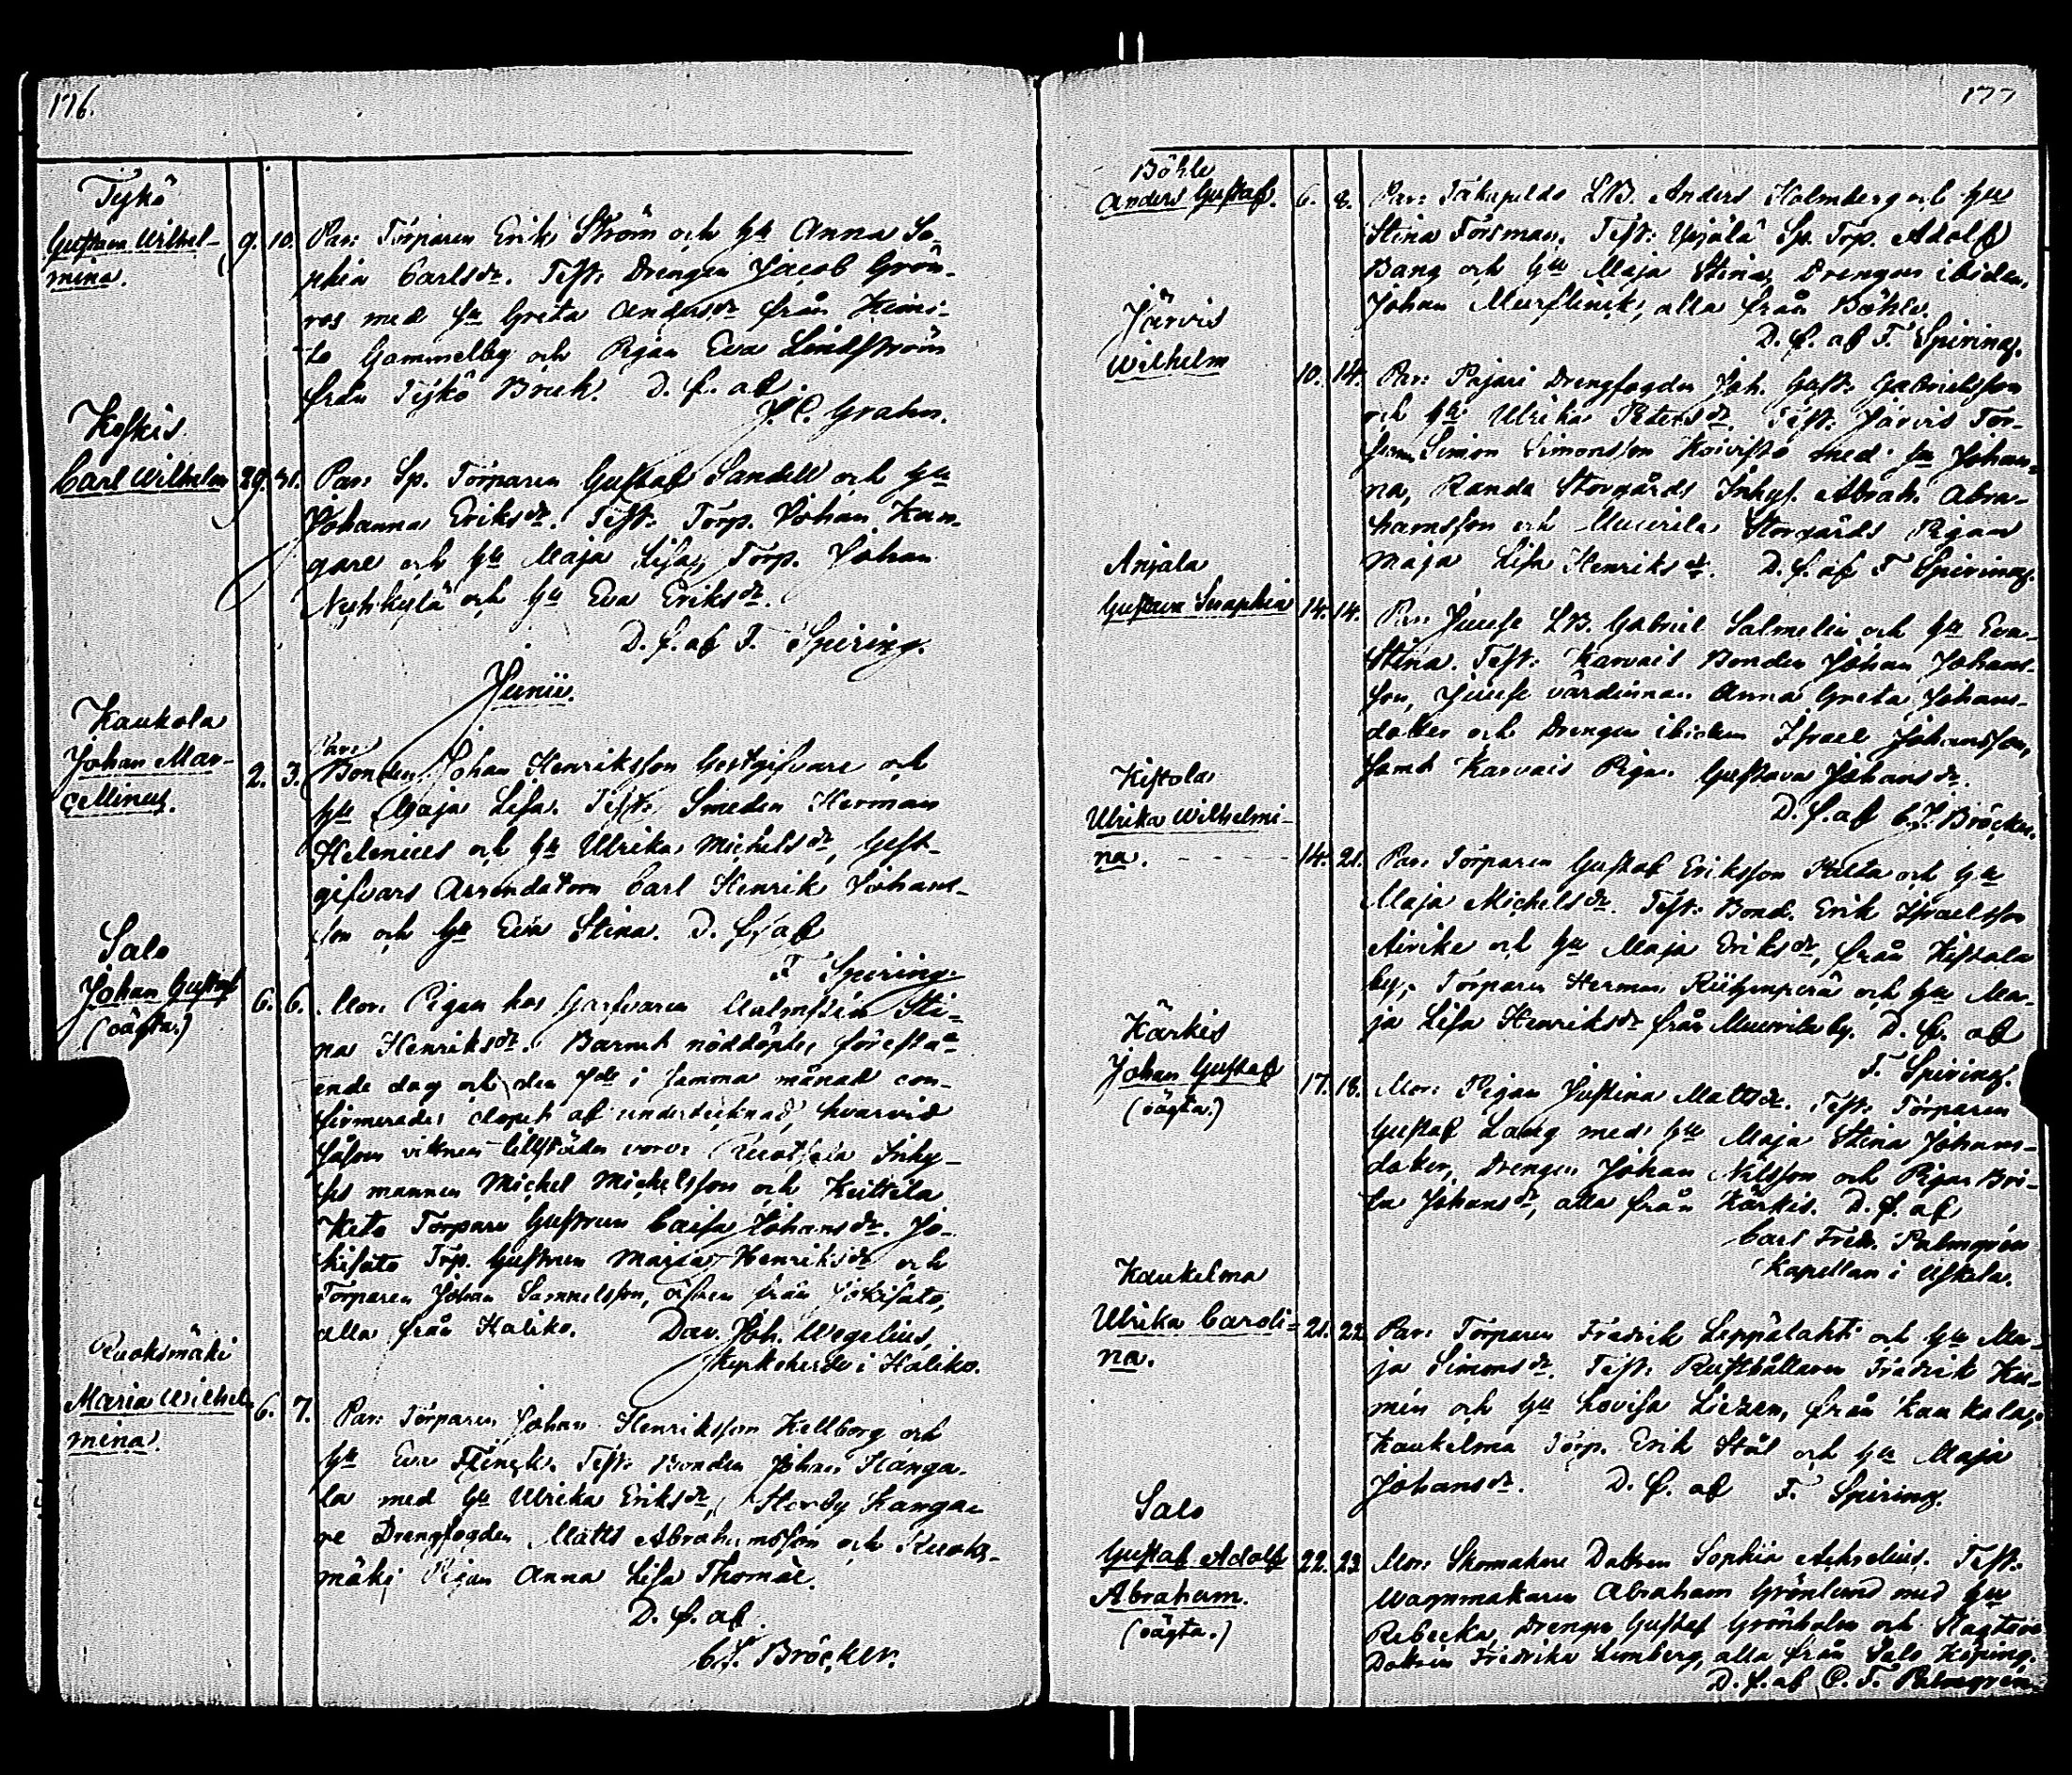 176.
Tykö
Gustava Wilhel-
mina.
9. 10. Par: Torparen Erik Ström och hu Anna So-
phia Carlsdr. Test: Drengen Jacob Grön-
ros med hu Greta Andersdr från Kimi-
to Gammelby och Pigan Eva Lindström
från Tykö Bruk. D. f. af
J. C. Grahn.
Koskis
Carl Wilhelm
29. 31. Par: Sp. Torparen Gustaf Sandell och hu
Johanna Eriksdr. Test: Torp. Johan Kan-
gare och hu Maja Lisa, Torp. Johan
och hu Eva Eriksdr.
D. f. af F. Spiring.
Junii.
Kaukola
Johan Mar-
cellinus.
2. 3. Par:
Bonden Johan Henriksson Gestgifvare och
hu Maja Lisa. Test: Smeden Herman
Helenius och hu Ulrika Michelsdr, Gest-
gifvars Arrendatorn Carl Henrik Johans-
son och hu Eva Stina. D. f. af
F Spiring.
Salo
Johan Gustaf
(oägta.)
6. 6. Mor: Pigan hos Garfvaren Malmstén Sti-
na Henriksdr. Barnet nöddöptes förestå-
ende dag och den 7de i samma månad con-
firmerades dopet af undertecknad, hvarvid
såsom vittnen tillstädes voro: Inhy-
ses mannen Michel Michelsson och Kuttila
Keto Torpare Hustrun Caisa Johansdr. Jo-
kisato Torp. Hustrun Maria Henriksdr och
Torparen Johan Samuelsson, äfven från Jokisato,
alla från Haliko. Dav. Joh. Wegelius,
Kyrkoherde i Haliko.
Ruoksmäki
Maria Wilhel-
mina.
6. 7. Par: Torparen Johan Henriksson Hellborg och
hu Eva Flinck. Test: Bonden Johan Hanga-
la med hu Ulrika Eriksdr, Storby Kanga-
re Drengfogden Matts Abrahamsson och Ruoks-
mäki Pigan Anna Lisa Thomae.
D. f. af
C. J. Bröcker.
177
Böhle
Anders Gustaf.
6. 8. Par: LB. Anders Holmberg och hu
Stina Forsman. Test: Sp. Torp. Adolf
Bang och hu Maja Stina, Drengen ibidem
Johan Murflinik, alla från Böhle.
D. f. af F. Spiring.
Järvis
Wilhelm
10. 14. Par: Pajari Drengfogden Joh. Gust. Gabrielsson
och hu Ulrika Petersdr. Test: Järvis Tor-
paren Simon Simonsson Koivisto med hu Johan-
na, Randa Storgårds Inhys. Abrah. Abra-
hamsson och Muurila Storgårds Pigan
Maja Lisa Henriksdr. D. f. af F Spiring.
Anjala
Gustava Seraphia
14. 14. Par: Juuse LB. Gabriel Salmelin och hu Eva
Stina. Test: Karvais Bonden Johan Johans-
son, Juuse värdinnan Anna Greta Johans-
dotter och Drengen ibidem Israel Johansson,
samt Karvais Pigan Gustava Johansdr.
D. f. af C. J. Bröcker.
Kistola
Ulrika Wilhelmi-
na.
14. 21. Par: Torparen Gustaf Eriksson och hu
Maja Michelsdr. Test: Bond. Erik Israelsson
Airike och hu Maja Eriksdr, från Kistola
by, Torparen Herman och hu Ma-
ja Lisa Henriksdr från Muurila by. D. f. af
F. Spiring.
Kärkis
Johan Gustaf
(oägta.)
17. 18. Mor: Pigan Justina Mattsdr. Test: Torparen
Gustaf Lang med hu Maja Stina Johans-
dotter, Drengen Johan Nilsson och Pigan Bri-
ta Johansdr, alla från Kärkis. D. f. af
Carl Fredr. Palmgrén
Kapellan i Uskela.
Kaukelma
Ulrika Caroli-
na.
21. 22. Par: Torparen Fredrik Leppälahti och hu Ma-
ja Simonsdr. Test: Rusthållaren Fredrik Ku-
min och hu Lovisa Lizen, från Kaukola,
Kaukelma Torp. Erik Stål och hu Maja
Johansdr. D. f. af F. Spiring.
Salo
Gustaf Adolf
Abraham.
(oägta.)
22. 23. Mor: Skomakare Dottren Sophia Achrelius. Test:
Wagnmakaren Abraham Grönlund med hu
Rebecka, Drengen Gustaf Grönholm och
Dottren Fredrika Limberg, alla från Salo Köping.
D. f. af C. F. Palmgrén.